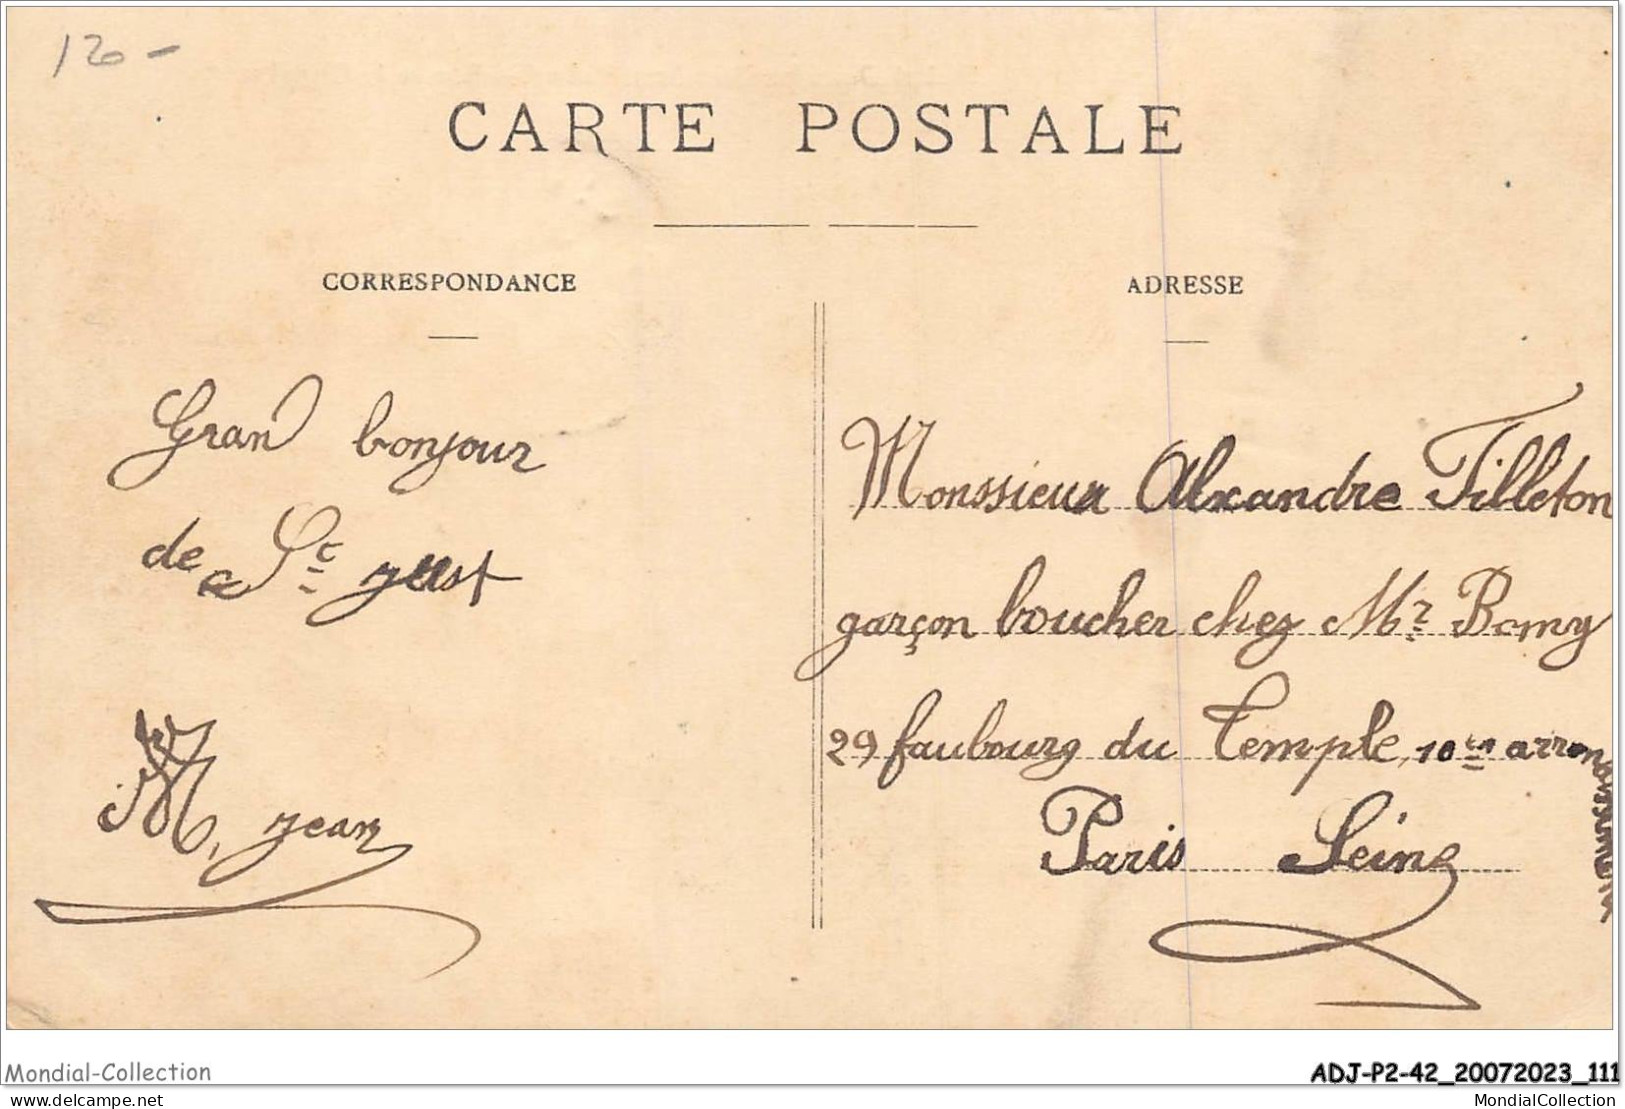 120 -
CARTE POSTALE
CORRESPONDANCE
Gran bonjour
de St just
M. jean
ADRESSE
Monssieur Alxandre Filleton
garçon boucher chez Mr Bomy
29 faubourg du Temple, 10em arrondissement
Paris Seine
Mondial-Collection
ADJ-P2-42_20072023_111
www.delcampe.net
MondialCollection